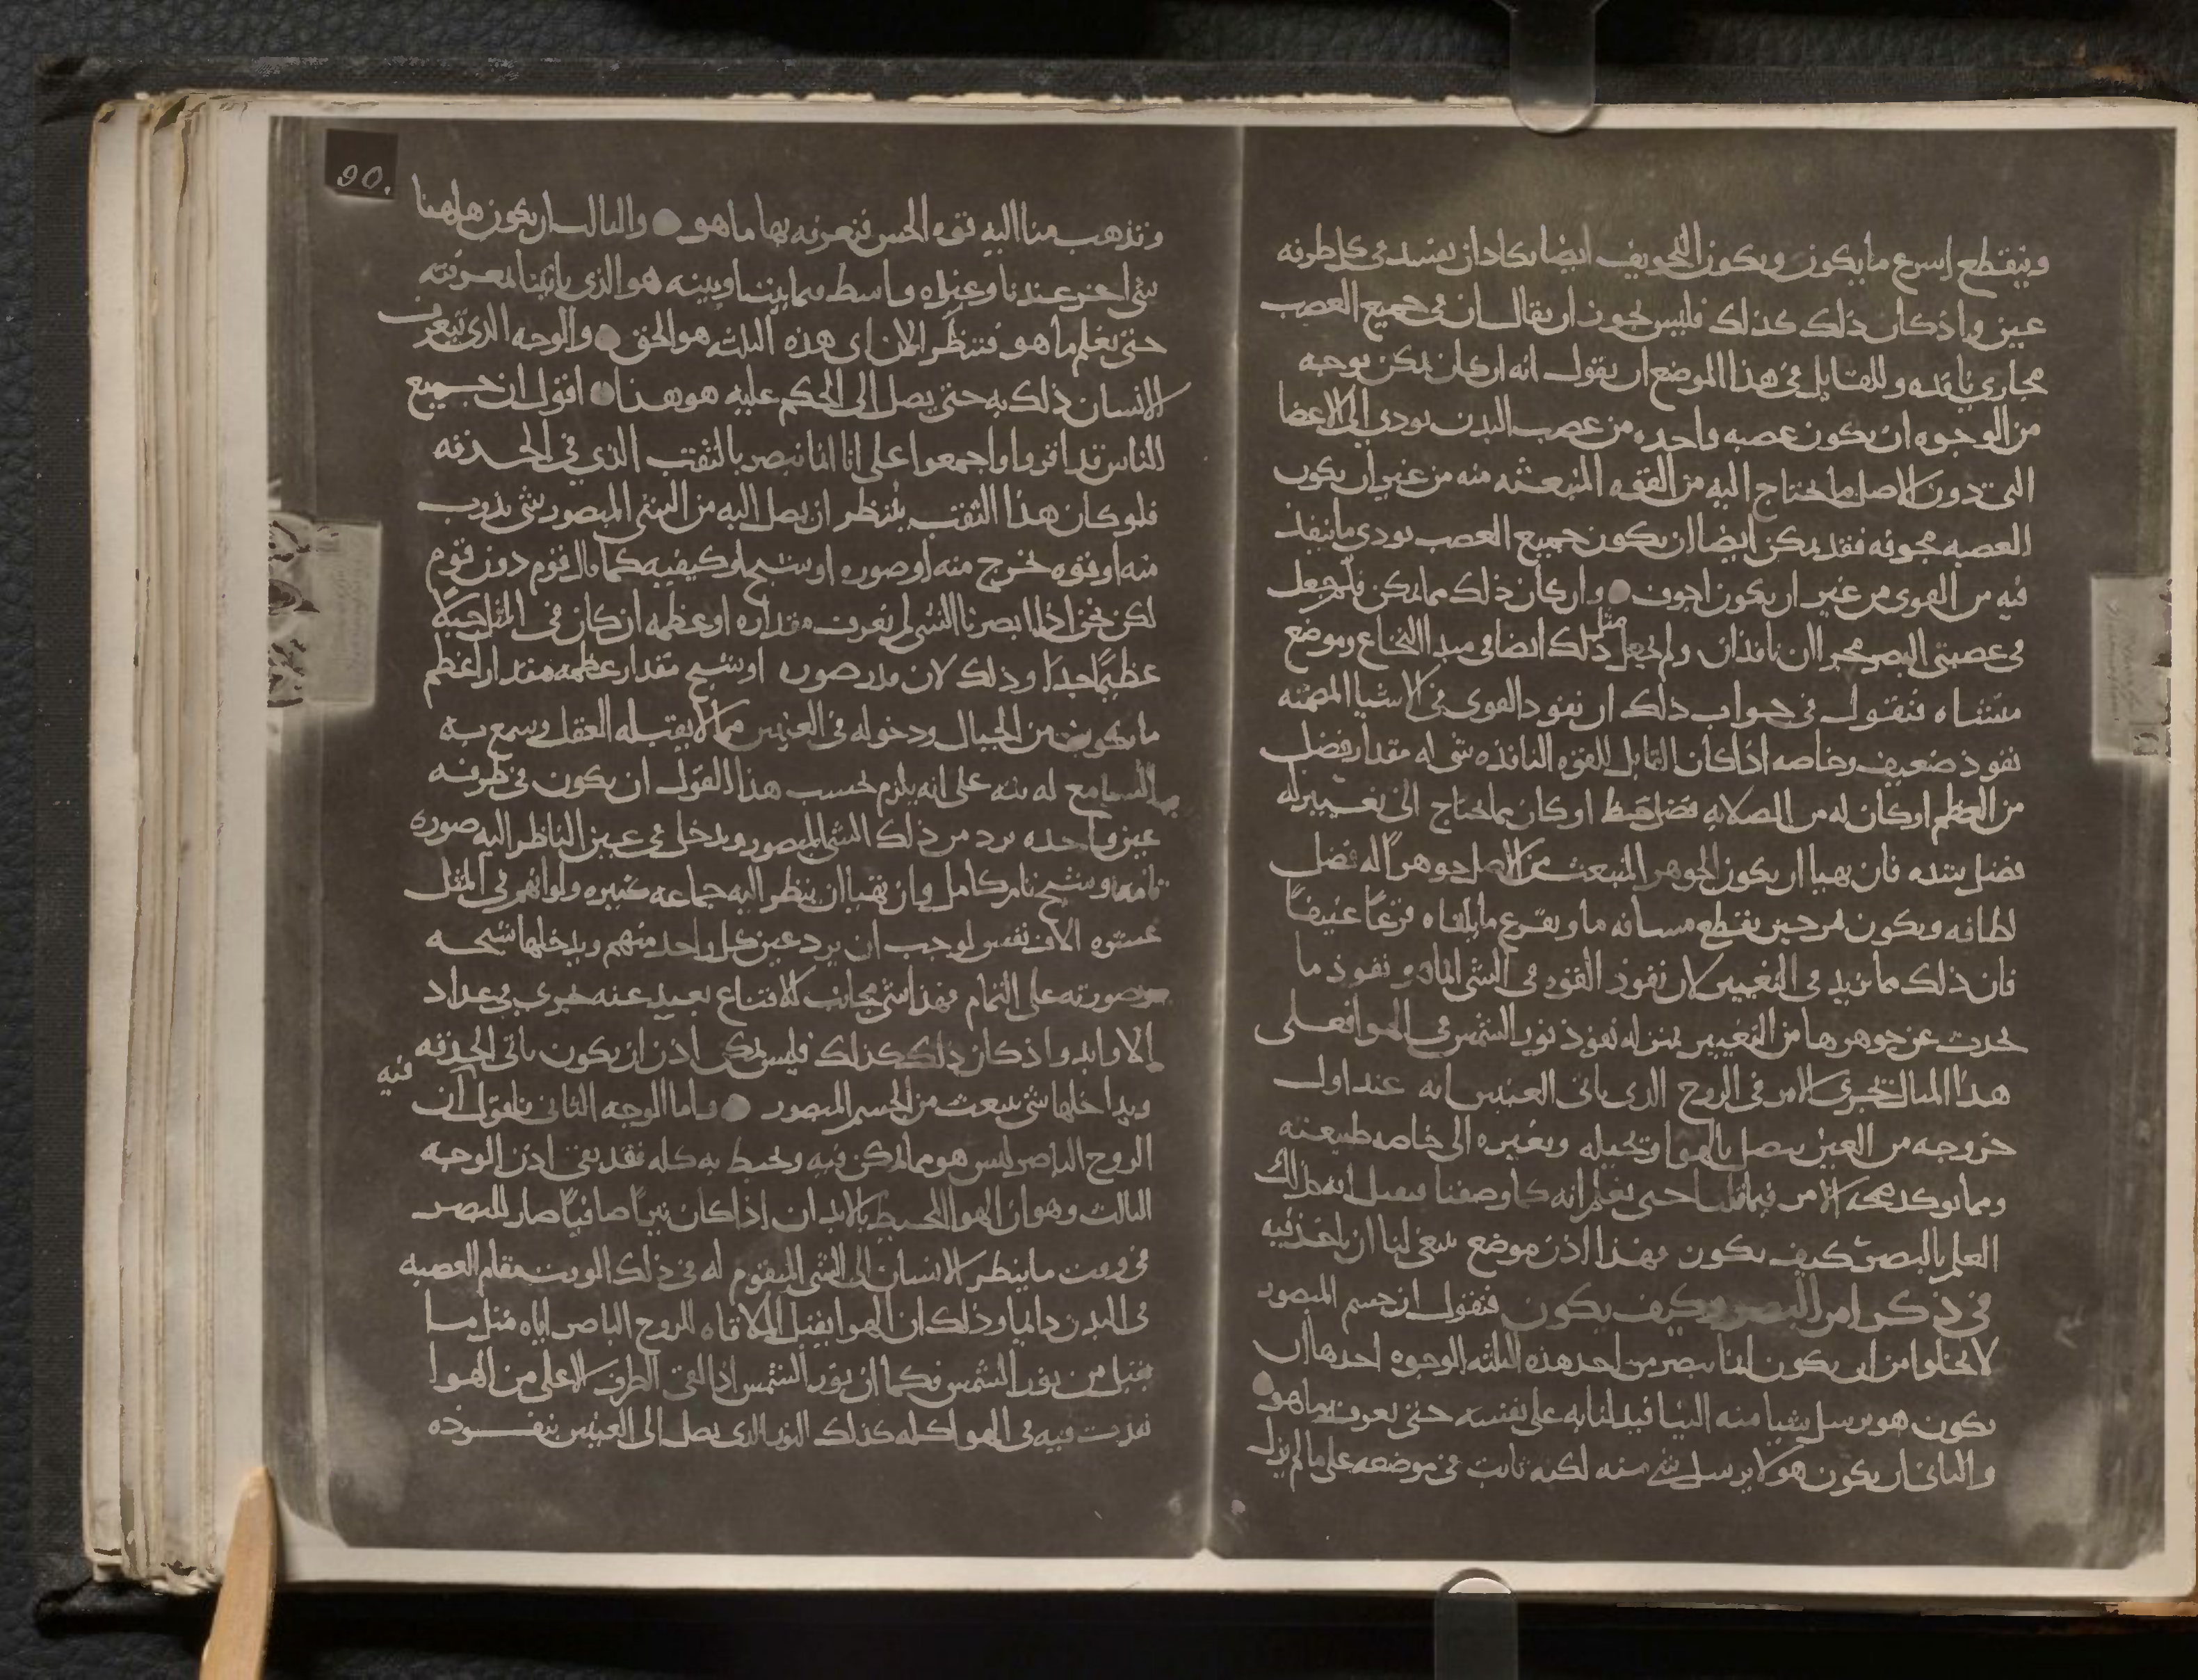 وينقطع اسرع ما يكون ويكون التجويف ايضا يكاد ان يفسد في كل طرفة
عين واذ كان ذلك كذلك فليس يجوز ان يقال ان في جميع العصب
مجاري نافذه وللقايل في هذا الموضع ان يقول انه ان كان يمكن بوجه
من الوجوه ان يكون عصبه واحده من عصب البدن تودي الى الاعضا
التي دون الاصل ما يحتاج اليه من القوه المنبعثه منه من غير ان يكون
العصبه مجوفه فقد يمكن ايضا ان يكون جميع العصب يودي ما ينفذ
فيه من القوى من غير ان يكون اجوف وان كان ذلك مما يمكن فلم جعل
في عصبتي البصر مجريان نافذان ولم يجعل مثل ذلك ايضا في مبدا النخاع وموضع
منشاه فنقول في جواب ذلك ان نفوذ القوى في الاشيا المصمته
نفوذ ضعيف وخاصه اذا كان القابل للقوه النافذه شي له مقدار فضل
من العظم او كان له من الصلابه فضل او كان مما يحتاج الى تغييره له
فضل شده فان تهيا ان يكون الجوهر المنبعث من الاصل جوهرا له فضل
لطافه ويكون مر حين يقطع مسافه ما ويقرع ما يلقاه قرعا عنيفا
فان ذلك مما يزيد في التغيير لان نفوذ القوه في الشي المار ونفوذ ما
يحدث عن جوهرها من التغيير بمنزله نفوذ نور الشمس في الهوا فعلى
هذا المثال يجري الامر في الروح الذي ياتي العينين انه عند اول
خروجه من العين يتصل بالهوا وتحيله وتغيره الى خاصه طبيعته
ومما يوكد الامر فيما قلنا حتى نعلم انه كما وصفنا
العلم بالبصر كيف يكون فهذا اذن موضع ينبغي لنا ان ناخذ فيه
في ذكر امر البصر وكيف يكون فنقول ان جسم المبصور
لا يخلوا من ان يكون انما يبصر من احد هذه الثلثه الوجوه احدها ان
يكون هو يرسل شيا منه الينا فيدلنا به على نفسه حتى نعرف ما هو
والثاني ان يكون هو لا يرسل شي منه لكنه ثابت في موضعه على ما لم يزل
90.
وتذهب منا اليه قوه الحس فنعرفه بها ما هو والثالث ان يكون هاهنا
شي اخر عندنا وعنده واسط فيما بيننا وبينه هو الذي ياتينا لمعرفته
حتى نعلم ما هو فننظر الان اي هذه الثلثه هو الحق والوجه الذي تعرف
الانسان ذلك به حتى يصل الى الحكم عليه هو هذا اقول ان جميع
الناس قد اقروا واجمعوا على انا انما نبصر بالثقب الذي في الحدقه
فلو كان هذا الثقب ينتظر ان يصل اليه من الشي المبصور شي يذوب
منه او قوه تخرج منه او صوره او شبح او كيفيه كما قال قوم دون قوم
لكن نحن اذا ابصرنا الشي لم نعرف مقداره او عظمه ان كان في المثل جبلا
عظيما جدا وذلك لان صوره او شبح مقدار عظمه مقدار اعظم
ما يكون من الجبال ودخوله في العينين مما لا يقبله العقل وسمع به
السامع له شنه على انه يلزم بحسب هذا القول ان يكون في طرفه
عين واحده يرد من ذلك الشي المبصور ويدخل في عين الناظر اليه صوره
تامه وشبح تام كامل وان تهيا ان ينظر اليه جماعه كثيره ولو انهم في المثل
عشره الاف نفس لوجب ان يرد عين كل واحد منهم ويدخلها شبحه
وصورته على التمام فهذا شي مجانب للاقناع بعيد عنه يجري في عداد
الاوابد واذ كان ذلك كذلك فليس يمكن اذن ان يكون ياتي الحدقه
ويداخلها شي ينبعث من الجسم المبصور واما الوجه الثاني فالقول فيه ان
الروح الباصر ليس هو مما يمكن فيه ويحيط به كله فقد بقي اذن الوجه
الثالث وهو ان الهوا المحيط بالابدان اذا كان نيرا صافيا صار للبصر
في وقت ما ينظر الانسان الى الشي المقوم له في ذلك الوقت مقام العصبه
في البدن دايما وذلك ان الهوا يقبل من ملاقاه الروح الباصر اياه مثل ما
يقبل من نور الشمس فكما ان نور الشمس اذا لقي الطرف الاعلى من الهوا
نفذت فيه في الهوا كله كذلك النور الذي يصل الى العينين ينفذ